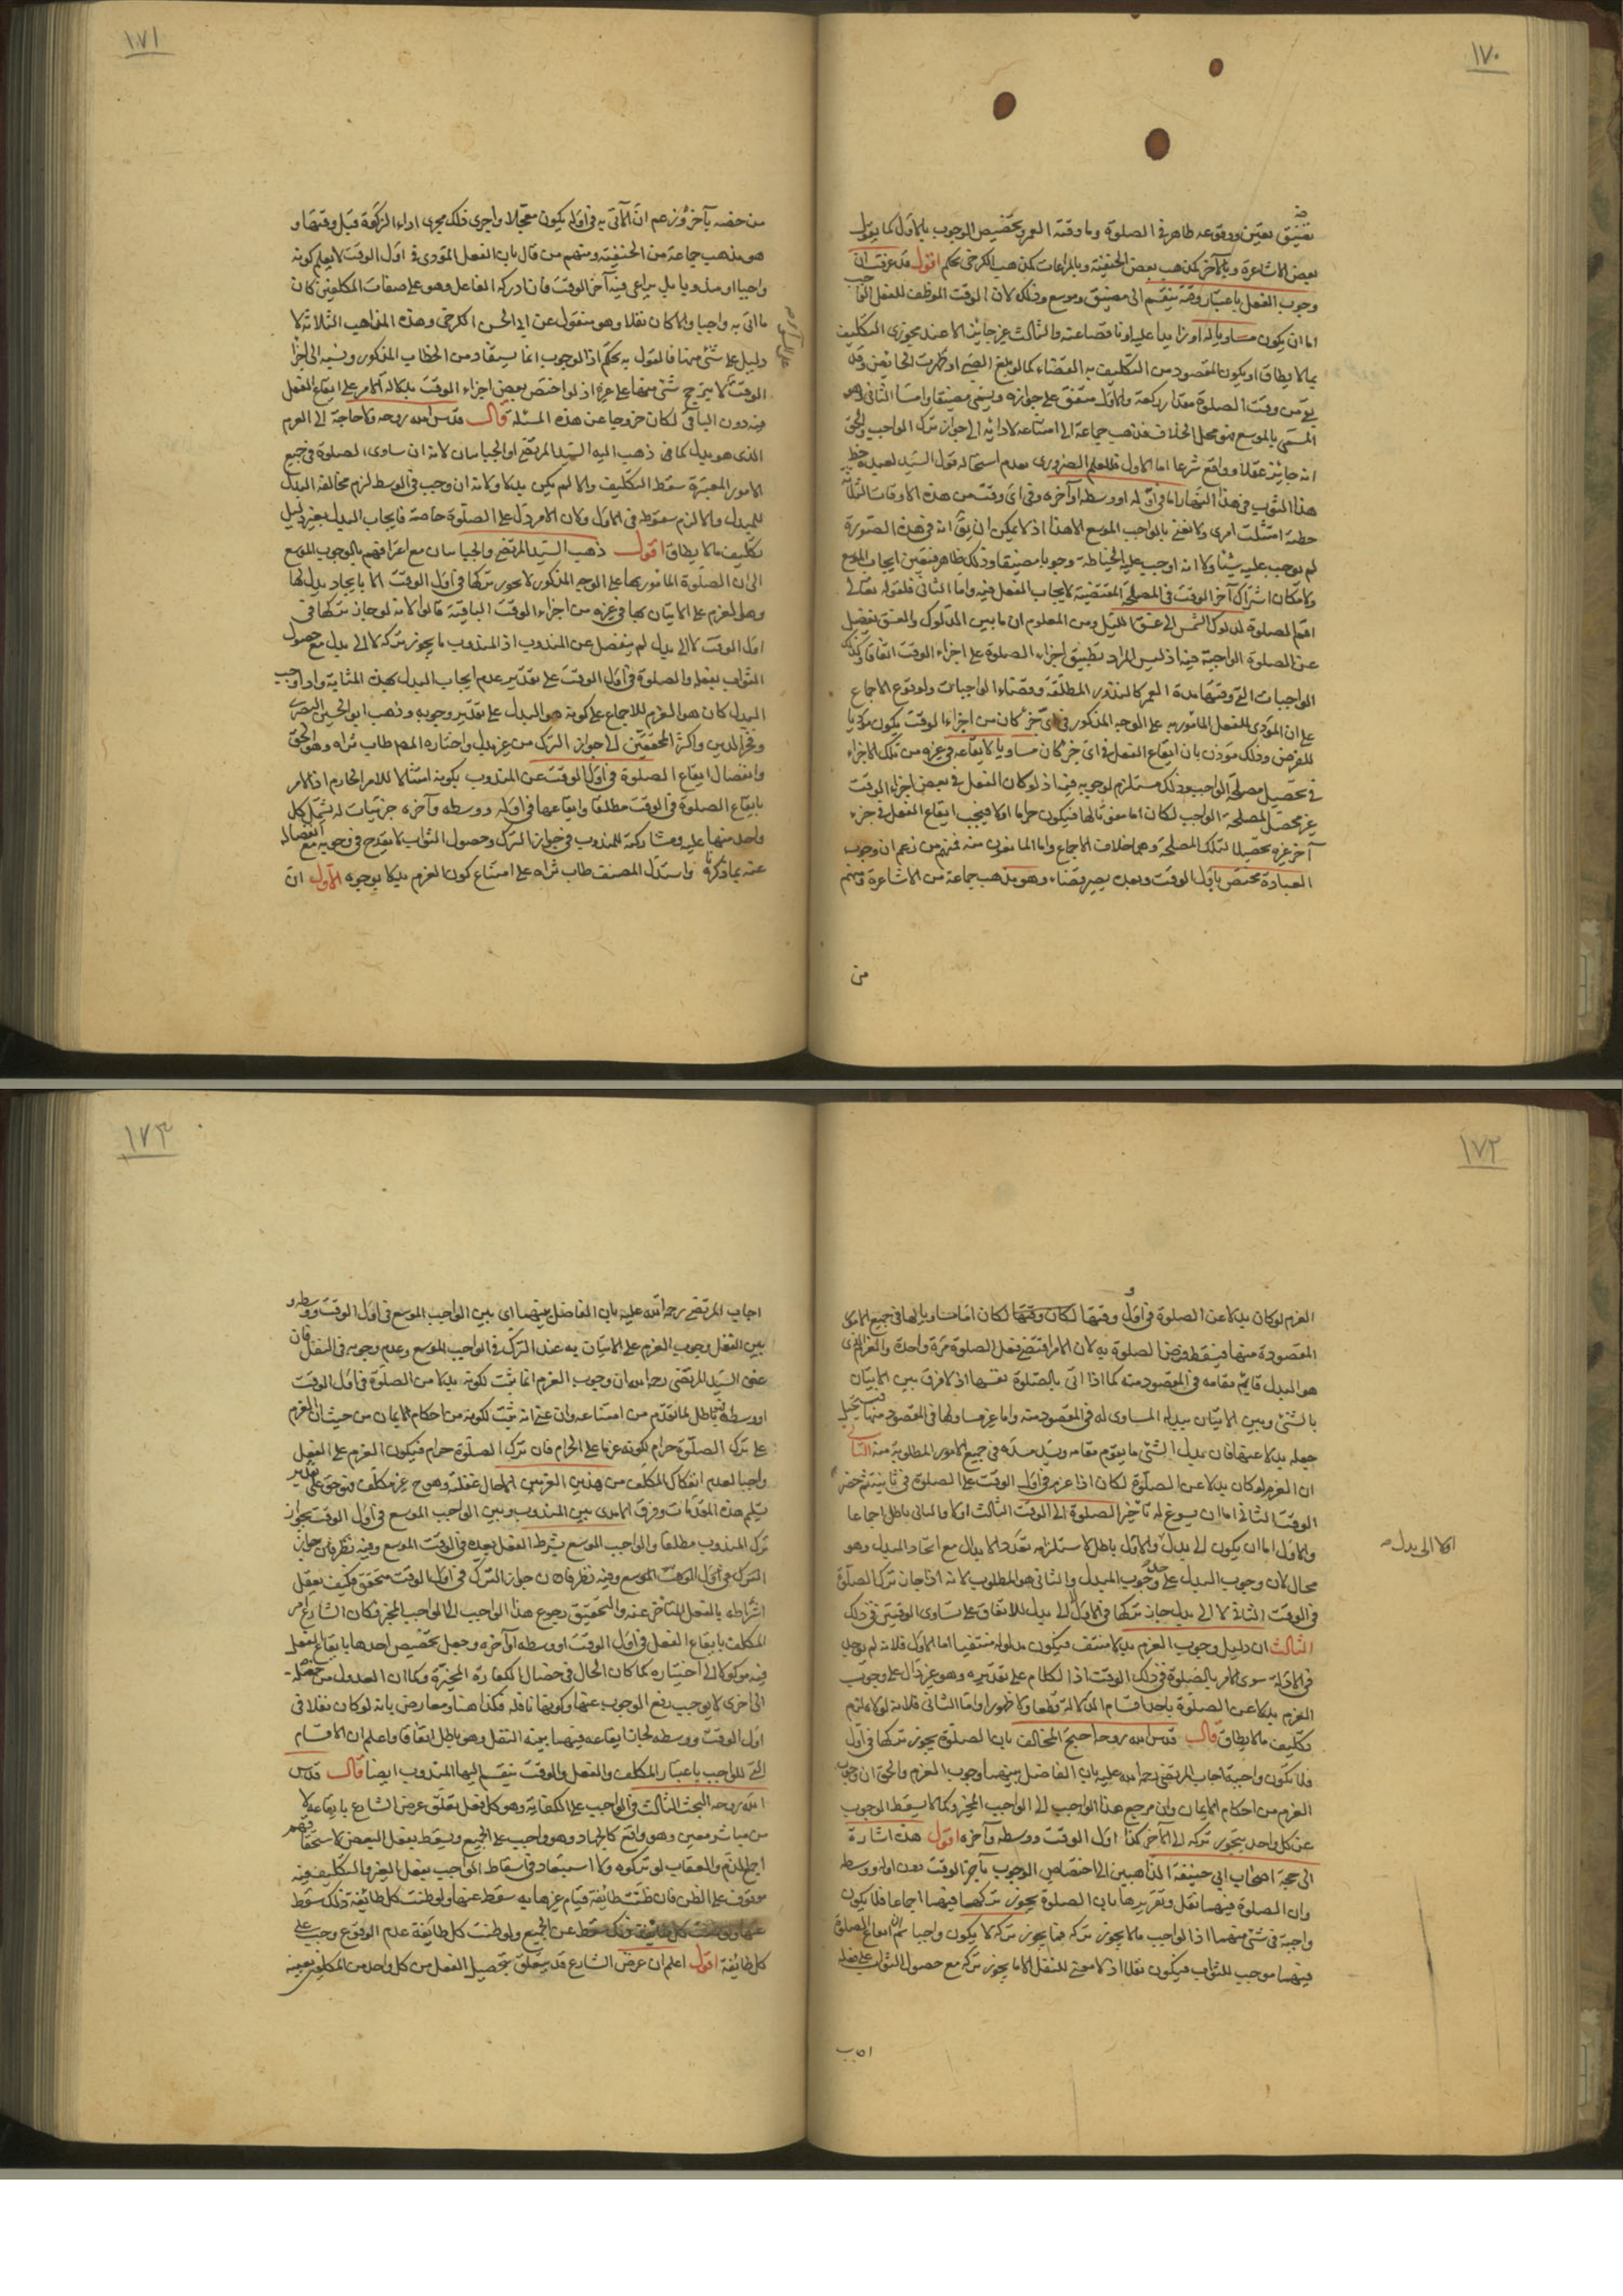 ١٧٠
تعين ووقوعه ظاهر في الصلوة وما وقته العمر وتخصيص الوجوب بالاول كما يقول
بعض الاشاعرة وبالآخر كمذهب بعض الحنفية وبالمراعات كمذهب الكرخي تحكم اقول قد عرفت ان
وجوب الفعل باعتبار وقته ينقسم الى مضيق وموسع وذلك لان الوقت الموظف للفعل
اما ان يكون مساويا له او زايدا عليه او ناقصا عنه والثالث غير جايز الا عند مجوزي التكليف
بما لا يطاق او يكون المقصود من التكليف به القضاء كما لو بلغ الصبي او طهرت الحايض وقد
بقي من وقت الصلوة مقدار ركعة والاول متفق على جوازه ويسمى مضيقا واما الثاني وهو
المسمى بالموسع فهو محل الخلاف فذهب جماعة الى امتناعه لادائه الى جواز ترك الواجب والحق
انه جايز عقلا وواقع شرعا اما الاول فللعلم الضروري بعدم استحالة قول السيد لعبده خط
هذا الثوب في هذا النهار اما في اوله او وسطه او آخره وفي اي وقت من هذه الاوقات الثلثة
خطته امتثلت امري ولا نعني بالواجب الموسع الا هذا اذ لا يمكن ان يق انه في هذه الصورة
لم يوجب عليه شيئا ولا انه اوجب عليه الخياطة وجوبا مضيقا وذلك ظاهر فتعين ايجاب الموسع
ولامكان اشتراك آخر الوقت في المصلحة المقتضية لايجاب الفعل فيه واما الثاني فلقوله تعالى
اقم الصلوة لدلوك الشمس الى غسق الليل ومن المعلوم ان ما بين الدلوك والغسق يفضل
عن الصلوة الواجبة فيه اذ ليس المراد تطبيق اجزاء الصلوة على اجزاء الوقت اتفاقا وكذلك
الواجبات التي وقتها مدة العمر كالنذور المطلقة وقضاء الواجبات ولوقوع الاجماع
على ان المؤدي للفعل المأمور به على الوجه المذكور في اي جزء كان من اجزاء الوقت يكون مؤديا
للفرض وذلك مؤذن بان ايقاع الفعل في اي جزء كان مساويا لايقاعه في غيره من تلك الاجزاء
في تحصيل مصلحة الواجب وذلك مستلزم لوجوبه فيها اذ لو كان الفعل في بعض اجزاء الوقت
غير محصل لمصلحة الواجب لكان اما مفوتا لها فيكون حراما اولا فيجب ايقاع الفعل في جزء
آخر غيره تحصيلا لتلك المصلحة وهما خلاف الاجماع واما المانعون منه فمنهم من زعم ان وجوب
العبادة مختص باول الوقت وبعده يصير قضاء وهو مذهب جماعة من الاشاعرة ومنهم
من
١٧١
من خصه بآخره وزعم ان الآتي به في اوله يكون معجلا واجرى ذلك مجرى اداء الزكوة قبل وقتها و
هو مذهب جماعة من الحنفية ومنهم من قال بان الفعل المؤدى في اول الوقت لا يعلم كونه
واجبا او مندوبا بل يراعى فيه آخر الوقت فان ادركه الفاعل وهو على صفات المكلفين كان
ما اتى به واجبا والا كان نفلا وهو منقول عن ابي الحسن الكرخي وهذه المذاهب الثلاثة لا
دليل على شيء منها فالقول به تحكم اذ الوجوب انما يستفاد من الخطاب المذكور ونسبته الى اجزا
الوقت لا يترجح شيء منها على غيره اذ لو اختص بعض اجزاء الوقت بدلالة الامر على ايقاع الفعل
فيه دون الباقي لكان خروجا عن هذه المسئلة قال قدس الله روحه ولا حاجة الى العزم
الذي هو بدل كما في ذهب اليه السيد المرتضى والجبائيان لانه ان ساوى الصلوة في جميع
الامور المعتبرة سقط التكليف والا لم يكن بدلا ولانه ان وجب في الوسط لزم مخالفة البدل
للمبدل والا لزم سقوطه في الاول ولان الامر دل على الصلوة خاصة فايجاب البدل بغير دليل
تكليف ما لا يطاق اقول ذهب السيد المرتضى والجبائيان مع اعترافهم بالوجوب الموسع
الى ان الصلوة المأمور بها على الوجه المذكور لا يجوز تركها في اول الوقت الا بايجاد بدل لها
وهو العزم على الاتيان بها في غيره من اجزاء الوقت الباقية قالوا لانه لو جاز تركها في
اول الوقت لا الى بدل لم ينفصل عن المندوب اذ المندوب ما يجوز تركه لا الى بدل مع حصول
الثواب بفعله والصلوة في اول الوقت على تقدير عدم ايجاب البدل بهذه المثابة واذا وجب
البدل كان هو العزم للاجماع على كونه هو البدل على تقدير وجوبه وذهب ابو الحسين البصري
وفخر الدين واكثر المحققين الى جواز الترك من غير بدل واختاره المصـ طاب ثراه وهو الحق
وانفصال ايقاع الصلوة في اول الوقت عن المندوب بكونه امتثالا للامر الجازم اذ الامر
بايقاع الصلوة في الوقت مطلقا وايقاعها في اوله ووسطه وآخره جزئيات له يشتمل كل
واحد منها عليه ومشاركته للمندوب في جواز الترك وحصول الثواب لا يقدح في وجوبه مع انفصاله
عنه بما ذكرنا واستدل المصنف طاب ثراه على امتناع كون العزم بدلا بوجوه الاول ان
١٧٢
العزم لو كان بدلا عن الصلوة في اول وقتها لكان وقتها لكان اما مساويا لها في جميع الامور
المقصودة منها فيسقط فرض الصلوة به لان الامر اقتضى فعل الصلوة مرة واحدة والعزم الذي
هو البدل قائم مقامه في المقصود منه كما اذا اتى بالصلوة نفسها اذ لا فرق بين الاتيان
بالشيء وبين الاتيان ببدله المساوي له في المقصود منه واما غير مساو لها في المقصود منها فيستحيل
جعله بدلا عنها فان بدل الشيء ما يقوم مقامه ويسد مسده في جميع الامور المطلوبة منه الثاني
ان العزم لو كان بدلا عن الصلوة لكان اذا عزم في اول الوقت على الصلوة في ثانيه ثم حضر
الوقت الثاني اما ان يسوغ له تاخير الصلوة الى الوقت الثالث اولا والثاني باطل اجماعا
والاول اما ان يكون الى بدل والاول باطل لاستلزامه تعدد الابدال مع اتحاد المبدل وهو
اولا الى بدل صـ
محال لان وجوب البدل على حد وجوب المبدل والثاني هو المطلوب لانه اذا جاز ترك الصلوة
في الوقت الثاني لا الى بدل جاز تركها في الاول لا الى بدل للاتفاق على تساوي الوقتين في ذلك
الثالث ان دليل وجوب العزم بدلا منتف فيكون مدلوله منتفيا اما الاول فلانه لم يوجد
في الادلة سوى الامر بالصلوة في ذلك الوقت اذ الكلام على تقديره وهو غير دال على وجوب
العزم بدلا عن الصلوة باحد اقسام الدلالة قطعا ولا ظهورا واما الثاني فلانه لولاه لزم
تكليف ما لا يطاق قال قدس الله روحه احتج المخالف بان الصلوة يجوز تركها في اول
فلا تكون واجبة اجاب المرتضى رحمه الله عليه بان الفاصل بينهما وجوب العزم والحق ان وجوب
العزم من احكام الايمان وان مرجع هذا الواجب الى الواجب المخير وكما لا يسقط الوجوب
عن كل واحد بتجويز تركه الى الآخر كذا اول الوقت ووسطه وآخره اقول هذه اشارة
الى حجة اصحاب ابي حنيفة الذاهبين الى اختصاص الوجوب بآخر الوقت دون اوله ووسطه
وان الصلوة فيهما نفل وتقريرها بان الصلوة يجوز تركها فيهما اجماعا فلا يكون
واجبة في شيء منهما اذ الواجب ما لا يجوز تركه فما يجوز تركه لا يكون واجبا ثم ان ايقاع الصلوة
فيهما موجب للثواب فيكون نفلا اذ لا معنى للنفل الا ما يجوز تركه مع حصول الثواب على فعله
اجاب
١٧٣
اجاب المرتضى رحمة الله عليه بان الفاصل بينهما اي بين الواجب الموسع في اول الوقت ووسطه و
بين النفل وجوب العزم على الاتيان به عند الترك في الواجب الموسع وعدم وجوبه في النفل فان
عنى السيد المرتضى رحمه الله ان وجوب العزم انما يثبت لكونه بدلا من الصلوة في اول الوقت
او وسطه فباطل لما تقدم من امتناعه وان عنى انه يثبت لكونه من احكام الايمان من حيث ان العزم
على ترك الصلوة حرام لكونه عزما على الحرام فان ترك الصلوة حرام فيكون العزم على الفعل
واجبا لعدم انفكاك المكلف من هذين العزمين الا حال غفلته وهو ح غير مكلف فهو حق على تقدير
تسليم هذه المقدمات وفرق الآمدي بين المندوب وبين الواجب الموسع في اول الوقت بجواز
ترك المندوب مطلقا والواجب الموسع بشرط الفعل بعده في الوقت الموسع وفيه نظر فان جواز
الترك في اول الوقت الموسع وفيه نظر فان جواز الترك في اول الوقت متحقق فكيف يعقل
اشتراطه بالفعل المتاخر عنه والتحقيق رجوع هذا الواجب الى الواجب المخير فكان الشارع امر
المكلف بايقاع الفعل في اول الوقت او وسطه او آخره وجعل تخصيص احدها بايقاع الفعل
فيه موكولا الى اختياره كما كان الحال في خصال الكفارة المخيرة وكما ان العدول من خصلة
الى اخرى لا يوجب رفع الوجوب عنها وكونها نافلة فكذا هنا ومعارض بانه لو كان نفلا في
اول الوقت ووسطه لجاز ايقاعه فيهما بنية النفل وهو باطل اتفاقا واعلم ان الاقسام
التي للواجب باعتبار المكلف والفعل والوقت ينقسم اليها المندوب ايضا قال قدس
الله روحه البحث الثالث في الواجب على الكفاية وهو كل فعل تعلق غرض الشارع بايقاعه لا
من مباشر معين وهو واقع كالجهاد وهو واجب على الجميع ويسقط بفعل البعض لاستحقاقهم
اجمع الذم والعقاب لو تركوه ولا استبعاد في اسقاط الواجب بفعل الغير والتكليف فيه
موقوف على الظن فان ظنت طائفة قيام غيرها به سقط عنها ولو ظنت كل طائفة ذلك سقط
عن الجميع ولو ظنت كل طائفة عدم الوقوع وجب على
كل طائفة اقول اعلم ان غرض الشارع قد يتعلق بتحصيل الفعل من كل واحد من المكلفين بعينه